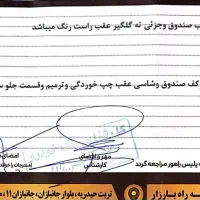 ب صندوق وجزئی ته گلگیر عقب راست رنگ میباشد
کف صندوق وشاسی عقب چپ خوردگی وترمیم وقسمت جلو س
مهر و امضای
کارشناس
امضای
پلیس راهور مراجعه گردد
راه بازرار
تربت حیدریه، بلوار جانبازان، جانبازان 11،